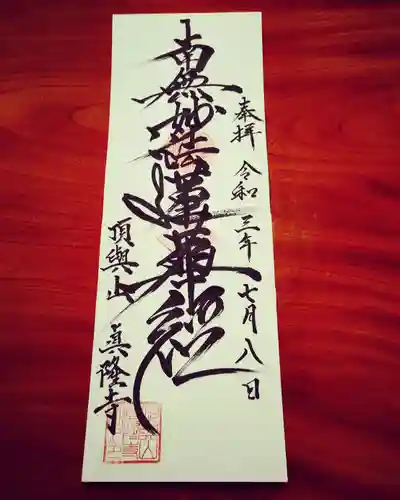 奉拝 令和三年七月八日
南無妙法蓮華経
頂與山 眞隆寺